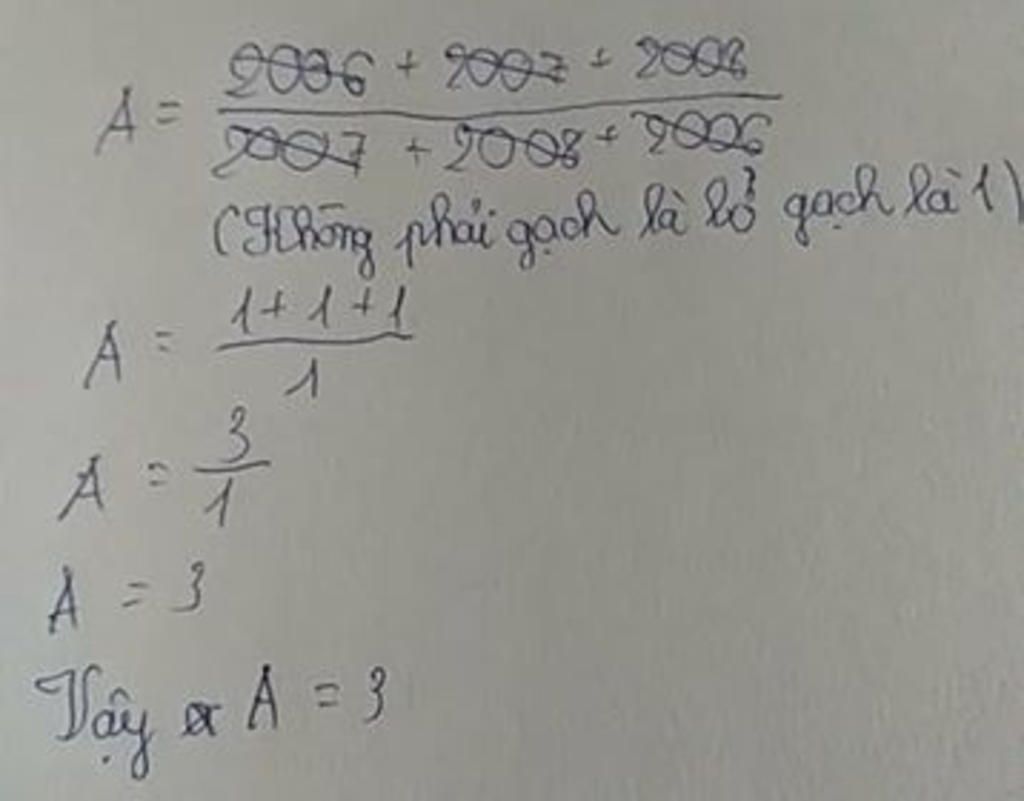 A = 2006 + 2007 + 2008 / 2007 + 2008 + 2006
(Không phải gạch là bỏ gạch là 1)
A = 1 + 1 + 1 / 1
A = 3 / 1
A = 3
Vậy A = 3